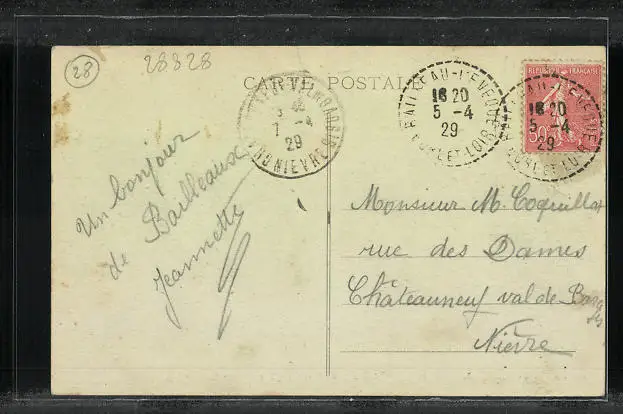 28
28828
CARTE POSTALE
7 -4
29
BAILLEAU-L'EVEQUE
16 20
5 -4
29
EURE-ET-LOIR
REPUBLIQUE FRANÇAISE
50
16 20
5 -4
29
Un bonjour
de Bailleaux
Jeannette
Monsieur M. Coquillat
rue des Dames
Châteauneuf val de Bargis
Nièvre